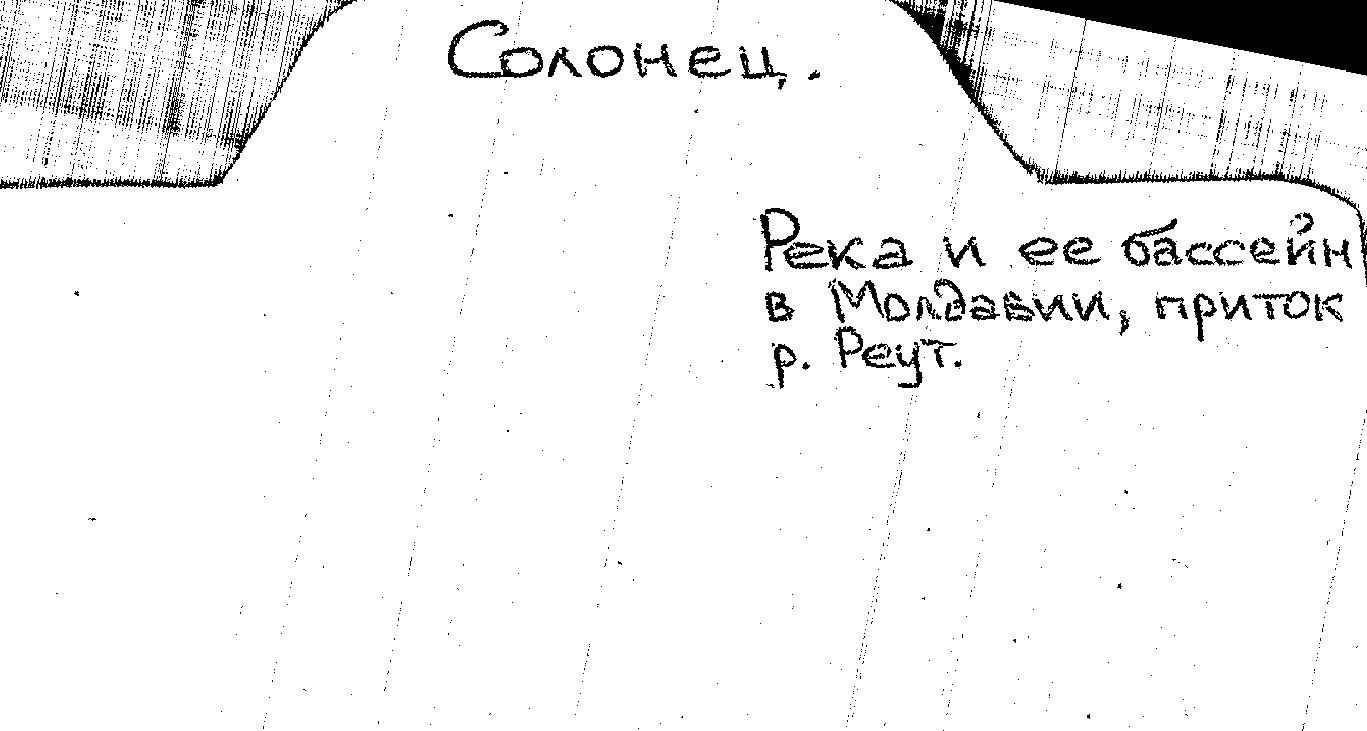 Солонец.
Река и ее бассейн
в Молдавии, приток
р. Реут.